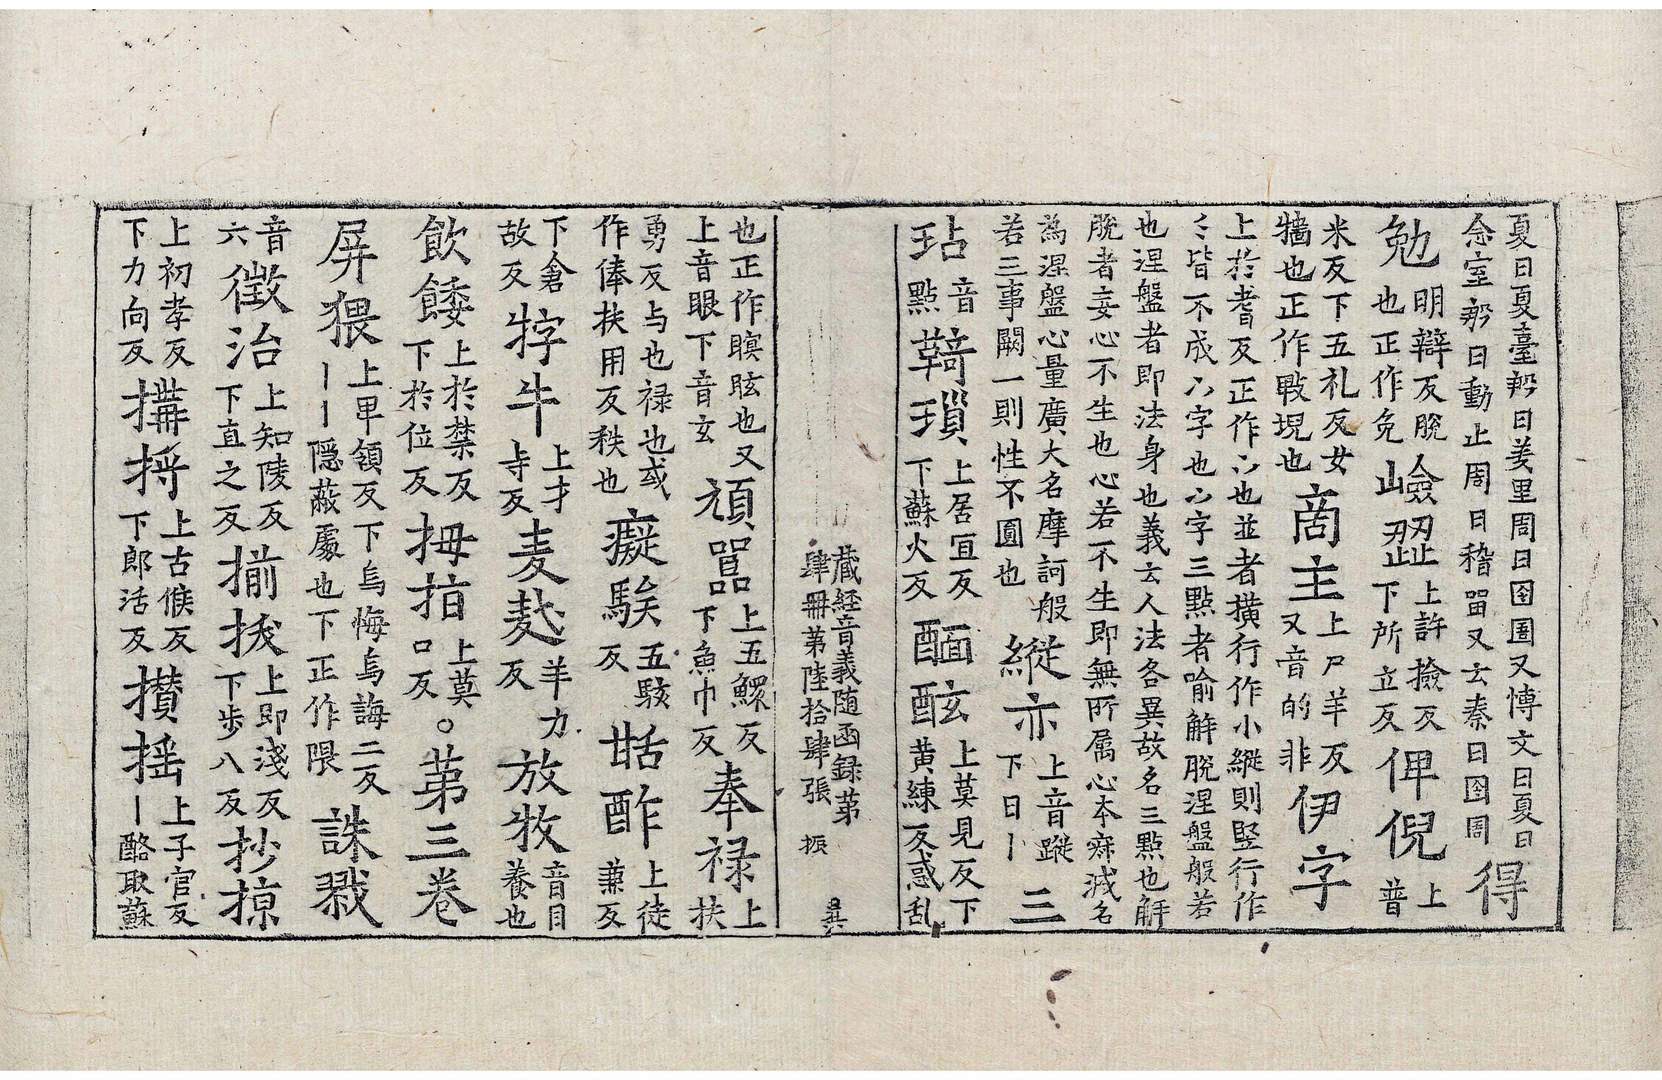 夏曰夏臺殷曰羑里周曰囹圄又博文曰夏曰念室殷曰動止周曰稽留又云秦曰囹圄得
勉明辯反脫也正作免嶮澁上許撿反下所立反俾倪上普
米反下五礼反女墻也正作堄也啇主上尸羊反又音的非伊字
上於耆反正作也並者橫行作小縱則竪行作ミ皆不成字也字三點者喻解脫涅盤般若
也涅盤者即法身也義云人法各異故名三點也解脫者妄心不生也心若不生即無所属心本寂滅名
為涅盤心量廣大名摩訶般若三事闕一則性不圓也縱亦上音蹤下曰丨三
玷音點鞯瑣上居宜反下蘇火反上莫見反下黃練反惑乱
藏経音義随函録第肆冊第陸拾肆張 振
也正作瞑眩也又上音眼下音玄頑嚚上五鰥反下魚巾反奉禄上扶
勇反与也禄也或作俸扶用反秩也癡騃五駭反甛酢上徒兼反
下倉故反牸牛上才寺反麦麩羊力反放牧音目養也
飲餧上於禁反下於位反拇拍上莫口反。第三卷
屏猥上畢領反下烏悔烏誨二反丨丨隱蔽處也下正作隈誅戮
音六徵治上知陵反下直之反揃拔上即淺反下步八反抄掠
上初孝反下力向反搆捋上古候反下郎活反攅揺上子官反丨酪取蘇